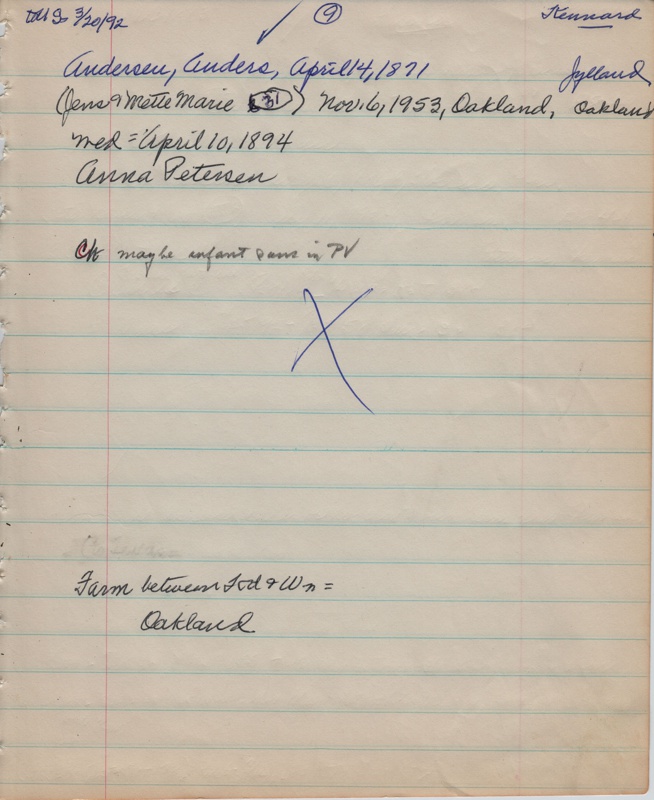 3/20/92 9 Kennard
Andersen, Anders, April 14, 1871 Jylland
(Jens & Mette Marie 31) Nov. 6, 1953, Oakland, Oakland
Med = April 10, 1894
Anna Petersen
Ck maybe infant sons in PV
X
Farm between & Wn =
Oakland